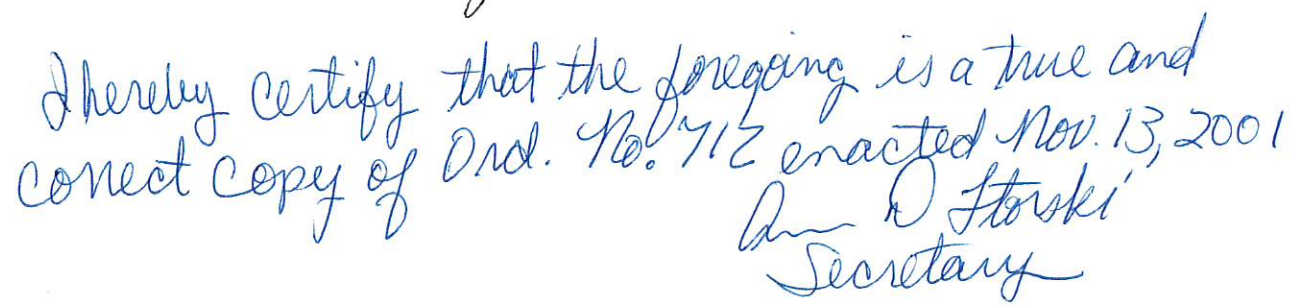 I hereby certify that the foregoing is a true and
correct copy of Ord. No. 712 enacted Nov. 13, 2001
D
Secretary